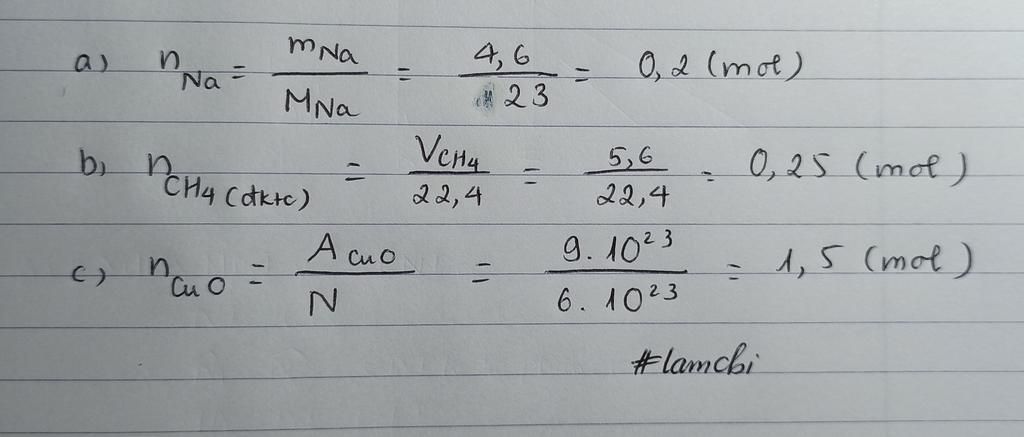 a) n Na = m Na / M Na = 4,6 / 23 = 0,2 (mol)
b) n CH4 (đktc) = V CH4 / 22,4 = 5,6 / 22,4 = 0,25 (mol)
c) n CuO = A CuO / N = 9.10²³ / 6.10²³ = 1,5 (mol)
#lamchi